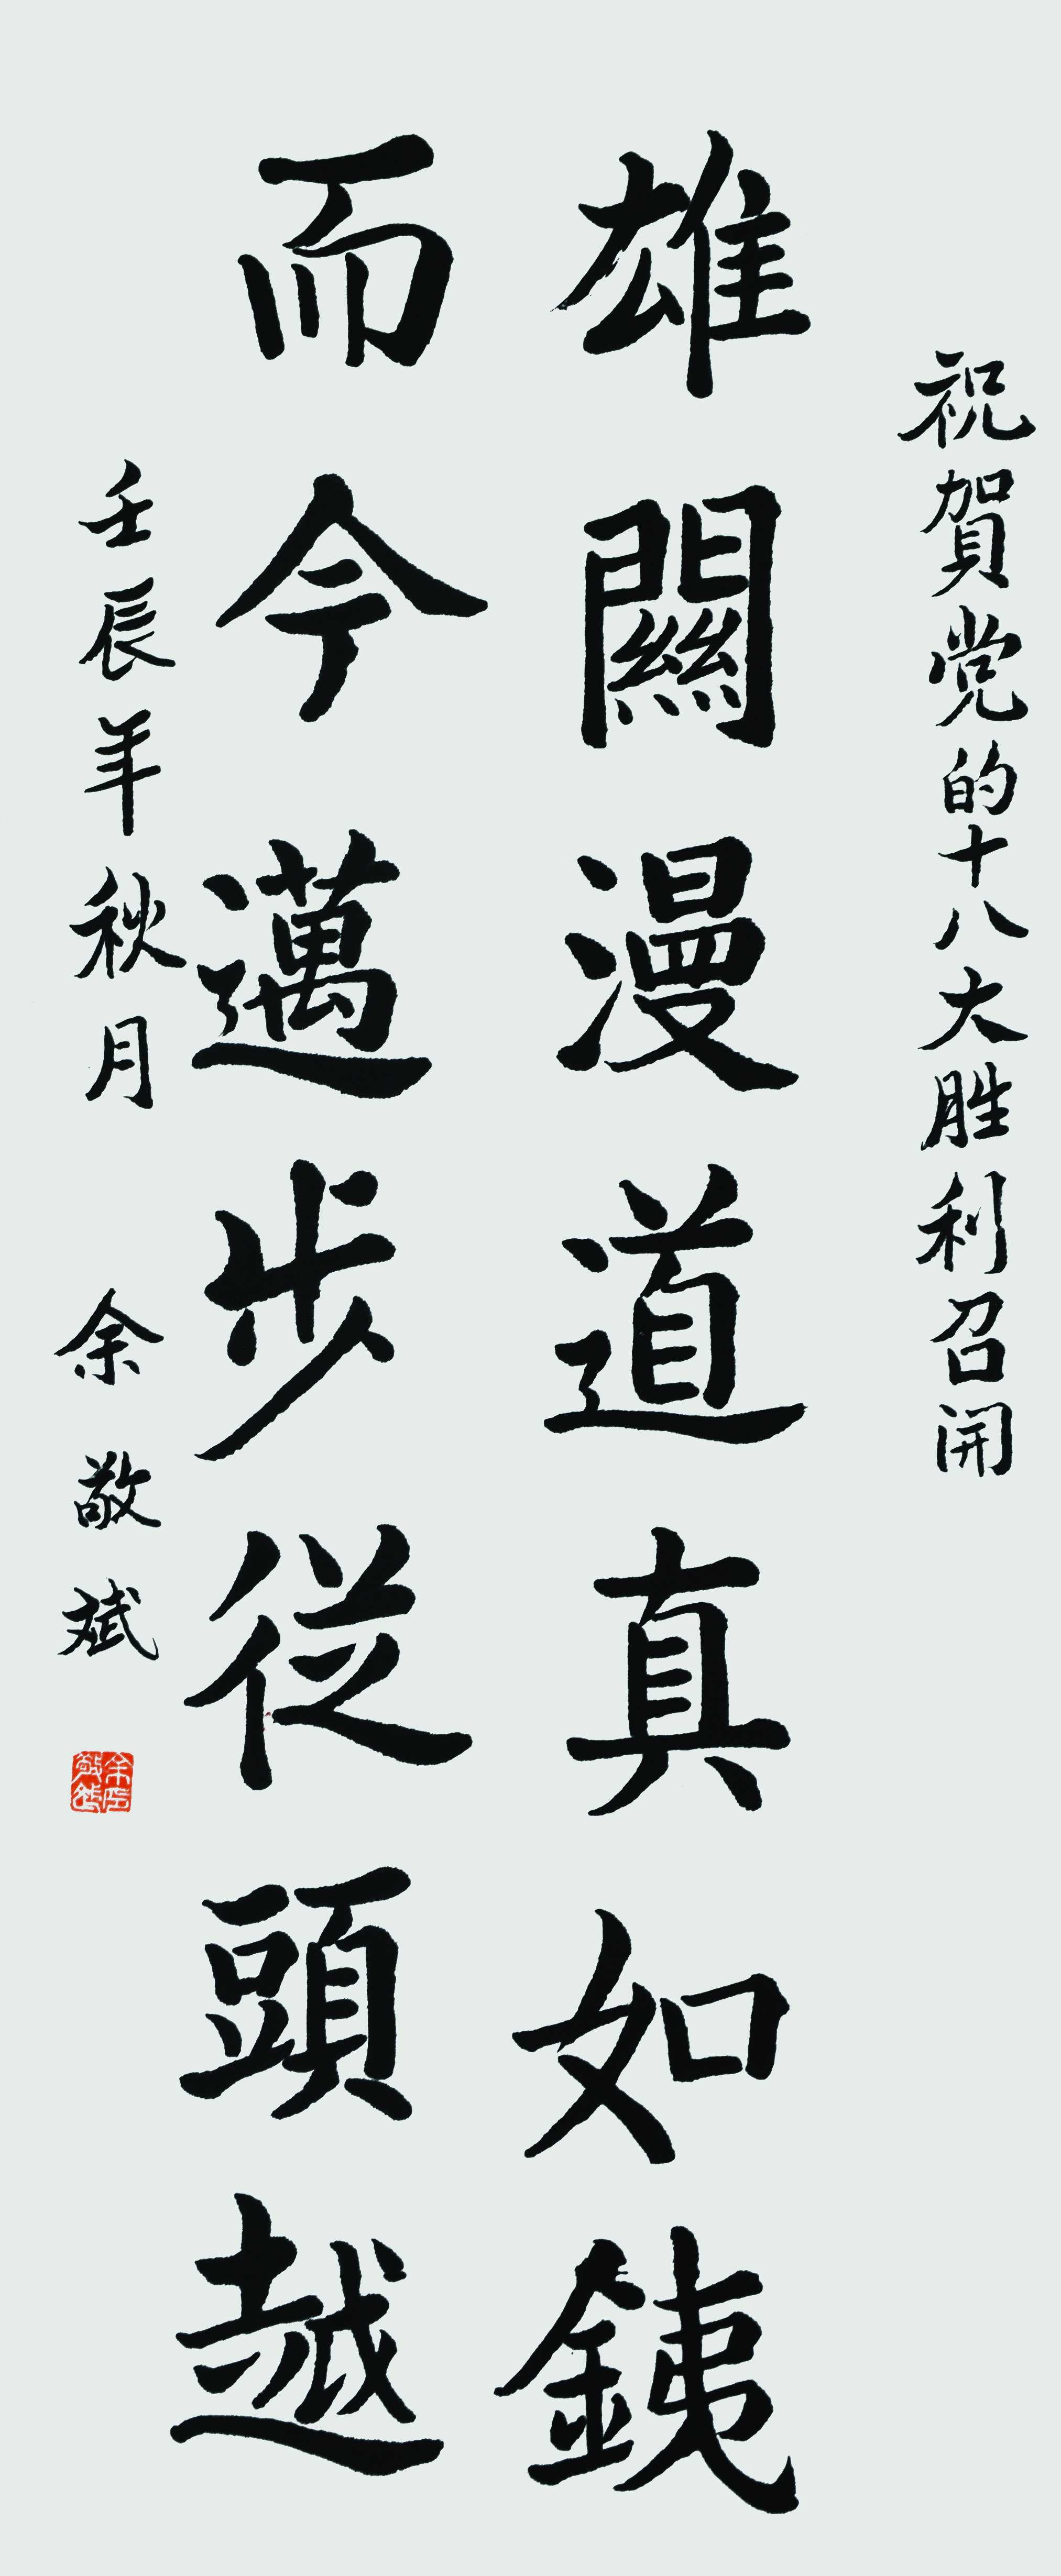 祝賀党的十八大胜利召開
雄關漫道真如銕
而今邁步従頭越
壬辰年秋月 余敬斌